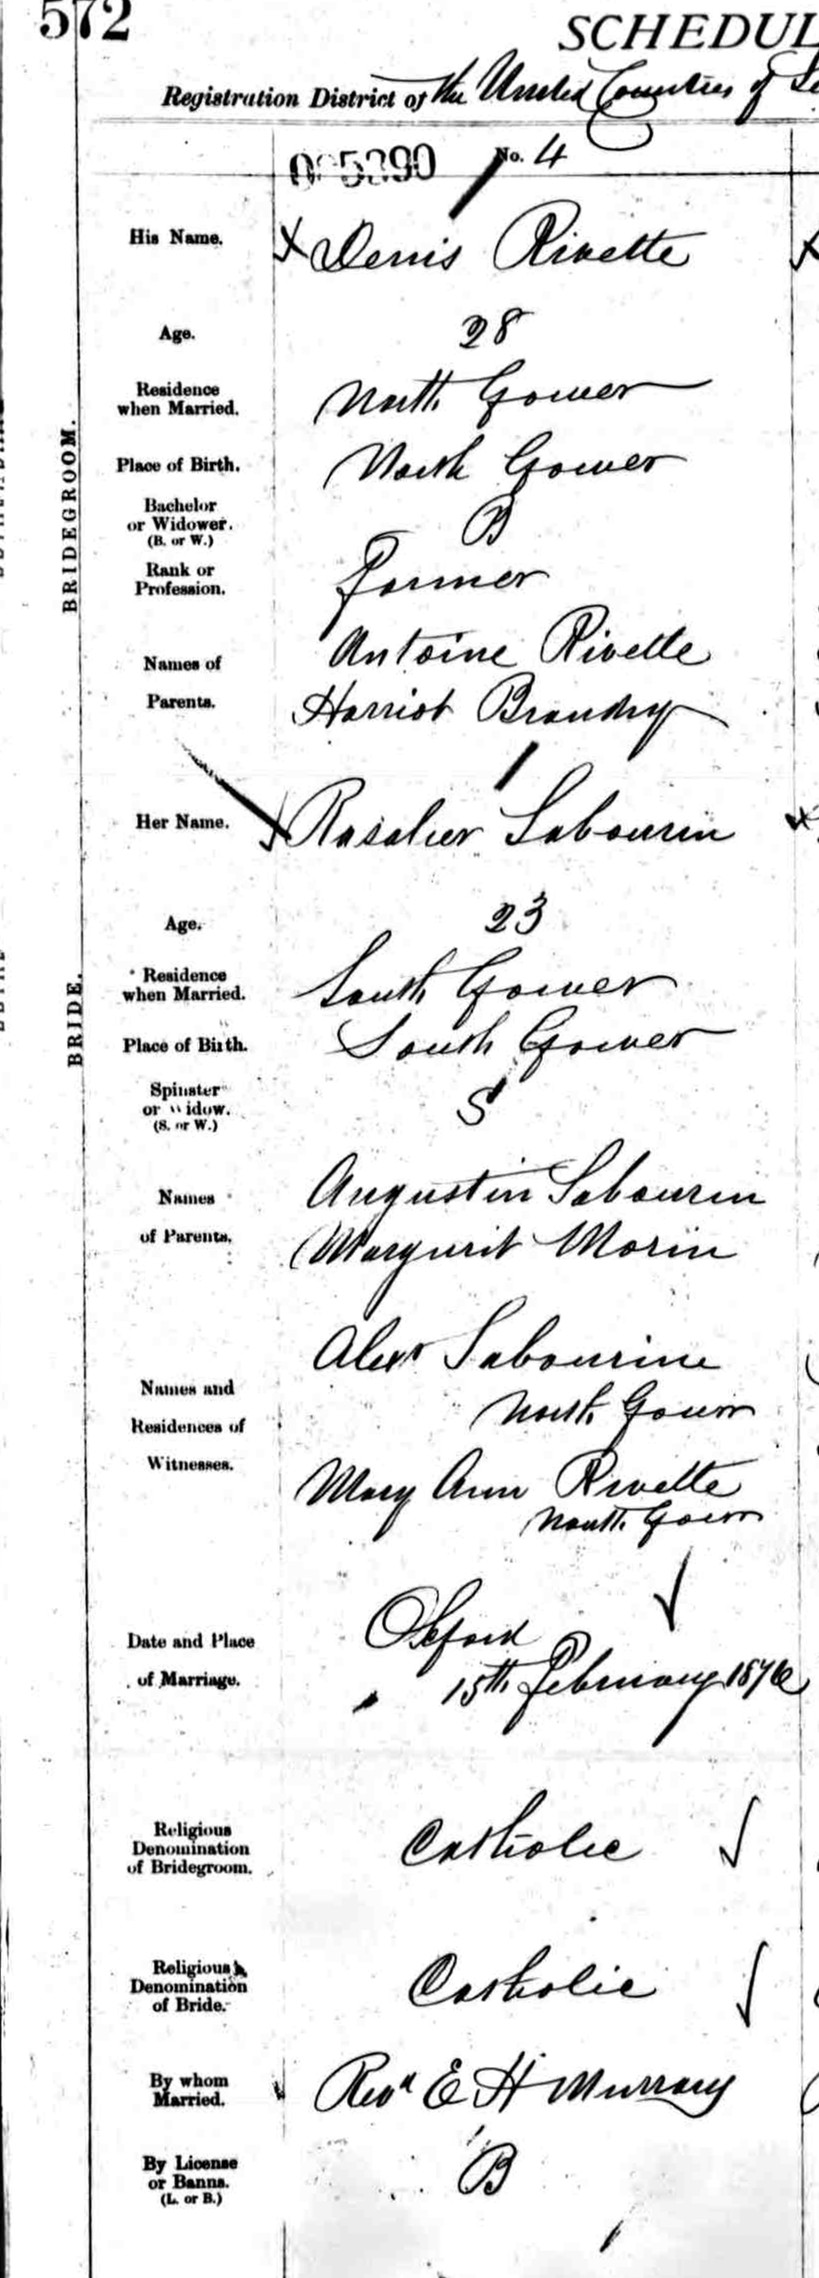 572
SCHEDUL
Registration District of the United Counties of Le
005390 No. 4
His Name. Denis Rivette
Age. 28
Residence
when Married. North Gower
Place of Birth. North Gower
Bachelor
or Widower.
(B. or W.) B
Rank or
Profession. Farmer
BRIDEGROOM.
Names of Antoine Rivette
Parents. Harriot Braudry
Her Name. Rosalier Sabourin
Age. 23
Residence
when Married. South Gower
BRIDE.
Place of Birth. South Gower
Spinster
or Widow.
(S. or W.) S
Names Augustin Sabourin
of Parents. Margurit Morin
Alexr Sabourine
Names and North Gower
Residences of
Witnesses. Mary Ann Rivette
North Gower
Date and Place Oxford
of Marriage. 15th February 1876
Religious
Denomination Catholic
of Bridegroom.
Religious
Denomination Catholic
of Bride.
By whom
Married. Revd E H Murray
By License
or Banns. B
(L. or B.)